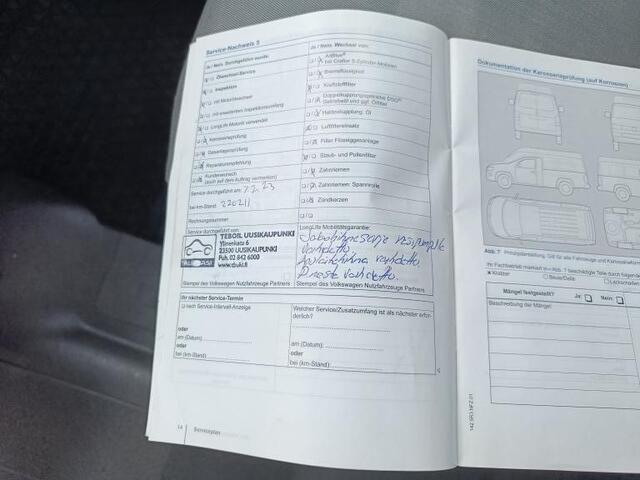 Service-Nachweis 5
Ja / Nein Durchgeführt wurde:
Ölwechsel-Service
Inspektion
mit Motorölwechsel
mit erweitertem Inspektionsumfang
LongLife Motoröl verwendet
Karosserieprüfung
Gasanlagenprüfung
Reparaturempfehlung
Kundenwunsch
(auch auf dem Auftrag vermerken)
Service durchgeführt am: 7.2.23
bei km-Stand: 220211
Rechnungsnummer:
Service durchgeführt von:
TEBOIL UUSIKAUPUNKI
Ylinenkatu 6
23500 UUSIKAUPUNKI
Puh. 02 842 6000
Stempel des Volkswagen Nutzfahrzeuge Partners
Ja / Nein Wechsel von:
AdBlue®
bei Crafter 5-Zylinder-Motoren
Bremsflüssigkeit
Kraftstofffilter
Doppelkupplungsgetriebe DSG®
Getriebeöl und ggf. Ölfilter
Haldexkupplung: Öl
Luftfiltereinsatz
Filter Flüssiggasanlage
Staub- und Pollenfilter
Zahnriemen
Zahnriemen: Spannrolle
Zündkerzen
LongLife Mobilitätsgarantie:
vaihdettu
vaihdettu
vaihdettu
Stempel des Volkswagen Nutzfahrzeuge Partners
Ihr nächster Service-Termin
nach Service-Intervall-Anzeige
oder
am (Datum)
oder
bei (km-Stand)
Welcher Service/Zusatzumfang ist als nächster erfor-
derlich?
am (Datum)
oder
bei (km-Stand):
14 Serviceplan
Dokumentation der Karosserieprüfung (auf Korrosion)
Abb. 7 Prinzipdarstellung. Gilt für alle Fahrzeuge und Karosserieformen
Ihr Fachbetrieb markiert in Abb. 7 beschädigte Teile durch folgende
Kratzer Beule/Delle Lackschäden
Mängel festgestellt? Ja: Nein:
Beschreibung der Mängel: